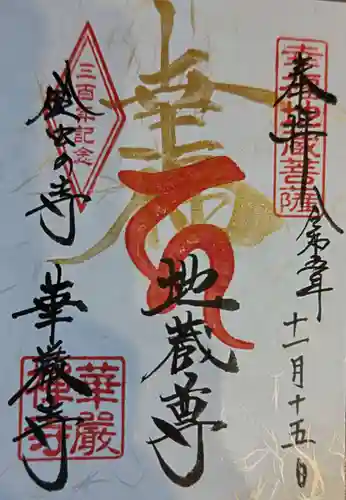 奉拝
幸福地蔵菩薩
令和五年
十一月十五日
幸
地蔵尊
三百年記念
虫の寺
華厳寺
華嚴
禪寺